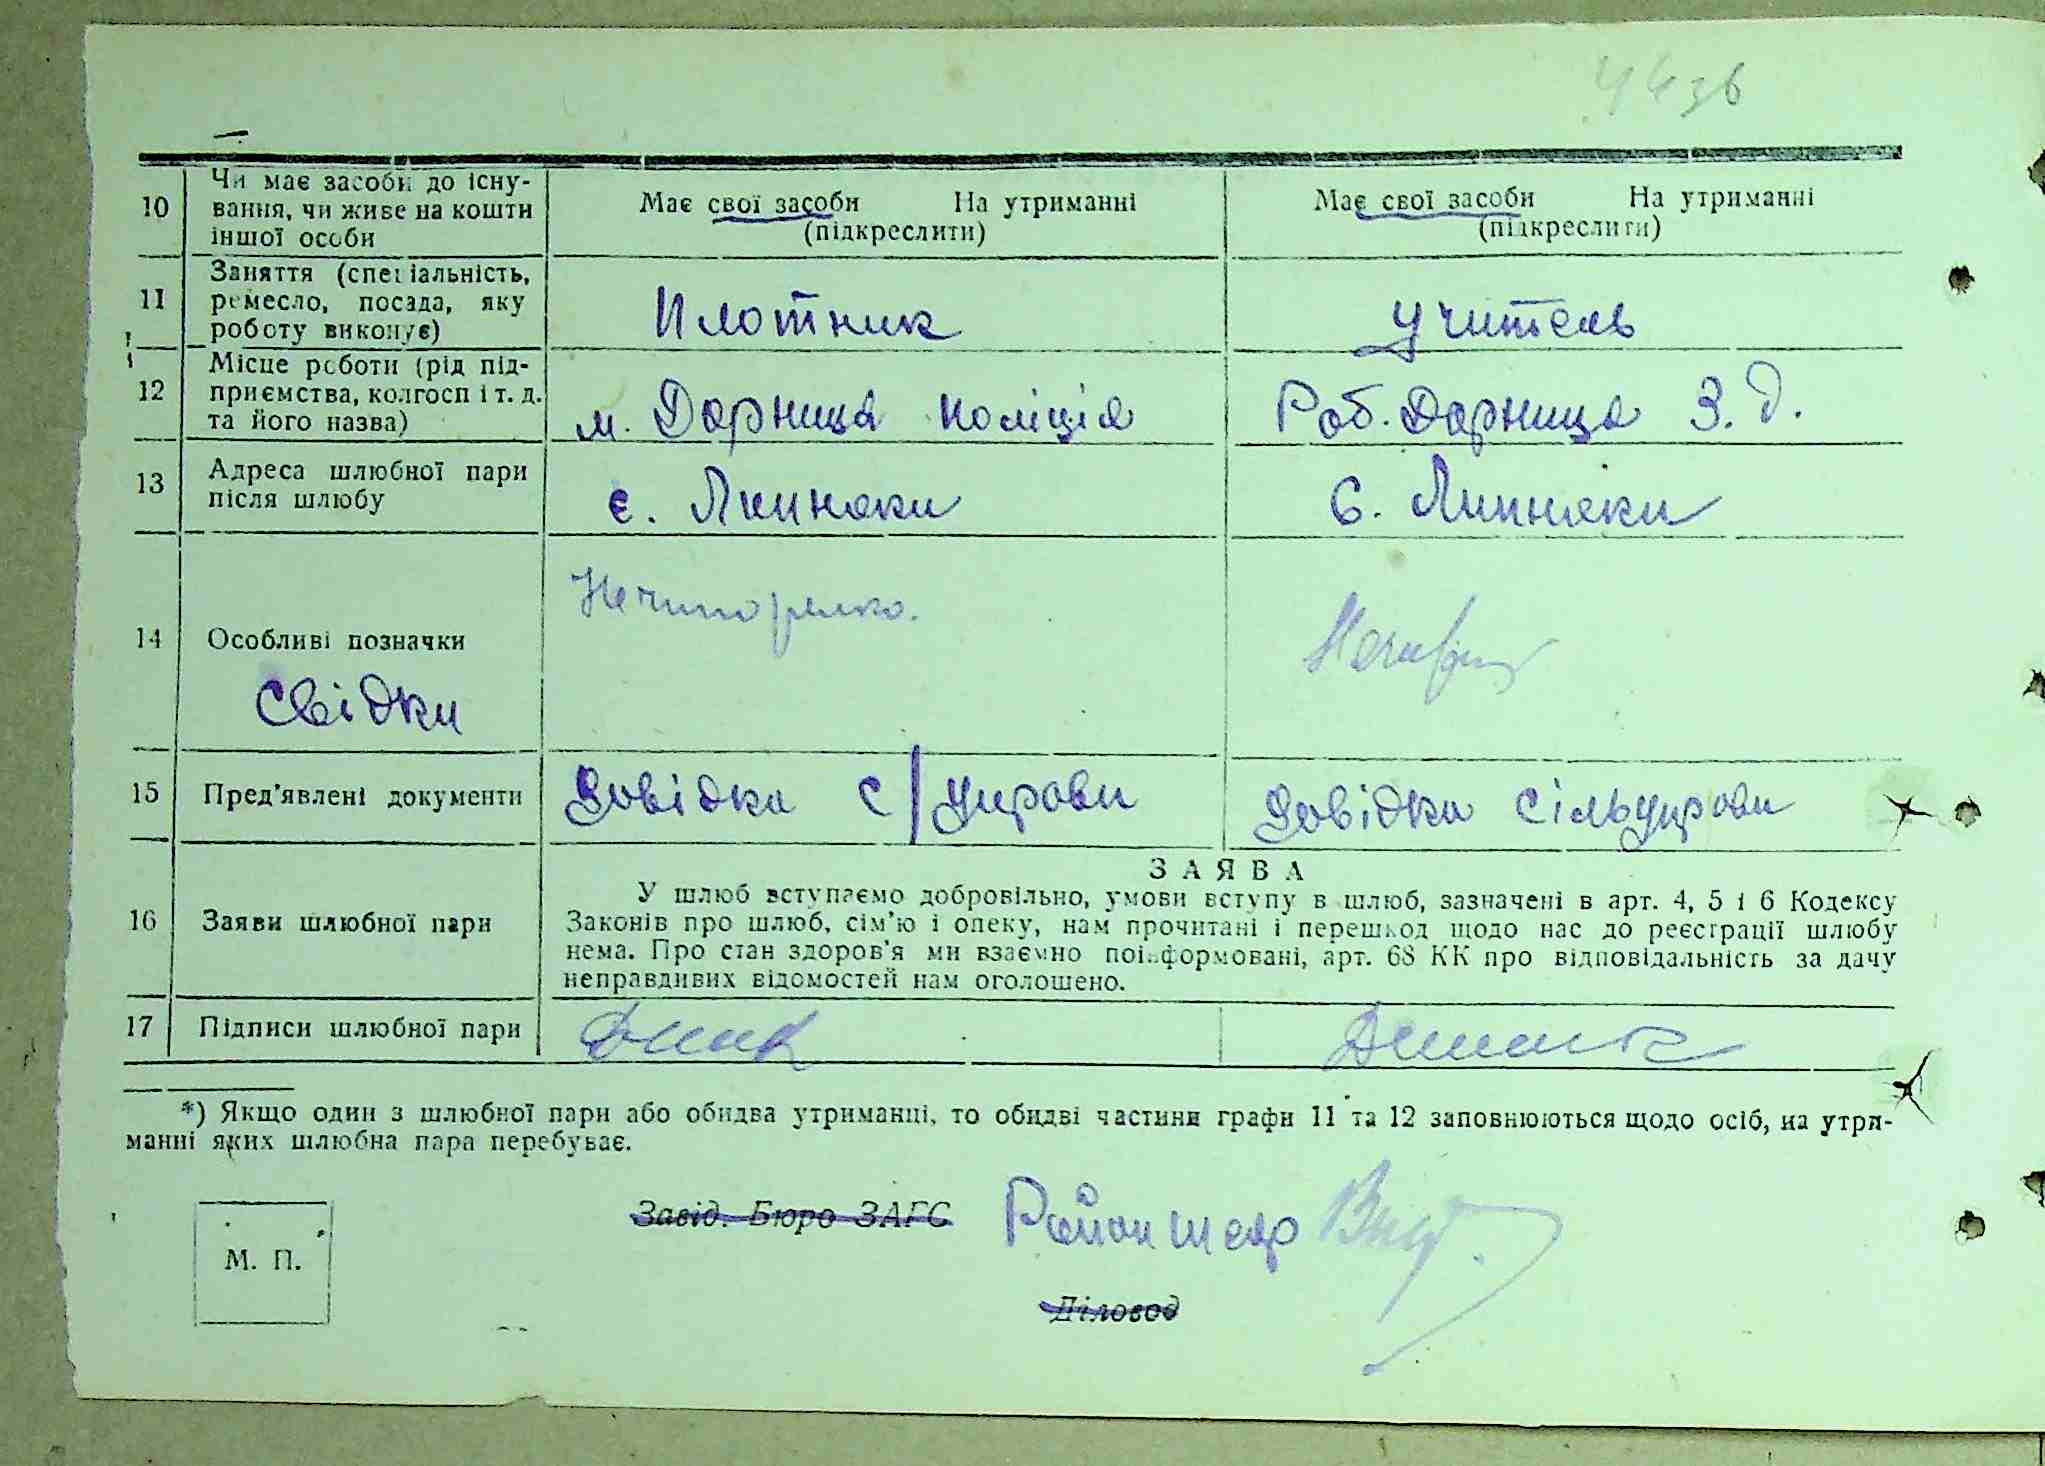 443в
10 Чи має засоби до існу-
вання, чи живе на кошти
іншої особи
Має свої засоби На утриманні
(підкреслити)
Має свої засоби На утриманні
(підкреслити)
11 Заняття (спеціальність,
ремесло, посада, яку
роботу виконує)
Плотник
учитель
12 Місце роботи (рід під-
приємства, колгосп і т. д.
та його назва)
м. Дарниця поліція
Роб. Дарниця З. д.
13 Адреса шлюбної пари
після шлюбу
с. Липняки
с. Липняки
14 Особливі позначки
свідки
Нечипоренко.
15 Пред'явлені документи
Довідка с/управи
Довідка сільуправи
16 Заяви шлюбної пари
ЗАЯВА
У шлюб вступаємо добровільно, умови вступу в шлюб, зазначені в арт. 4, 5 і 6 Кодексу
Законів про шлюб, сім'ю і опеку, нам прочитані і перешкод щодо нас до реєстрації шлюбу
нема. Про стан здоров'я ми взаємно поінформовані, арт. 68 КК про відповідальність за дачу
неправдивих відомостей нам оголошено.
17 Підписи шлюбної пари
*) Якщо один з шлюбної пари або обидва утриманці, то обидві частини графи 11 та 12 заповнюються щодо осіб, на утри-
манні яких шлюбна пара перебуває.
Завід. Бюро ЗАГС
М. П.
Діловод